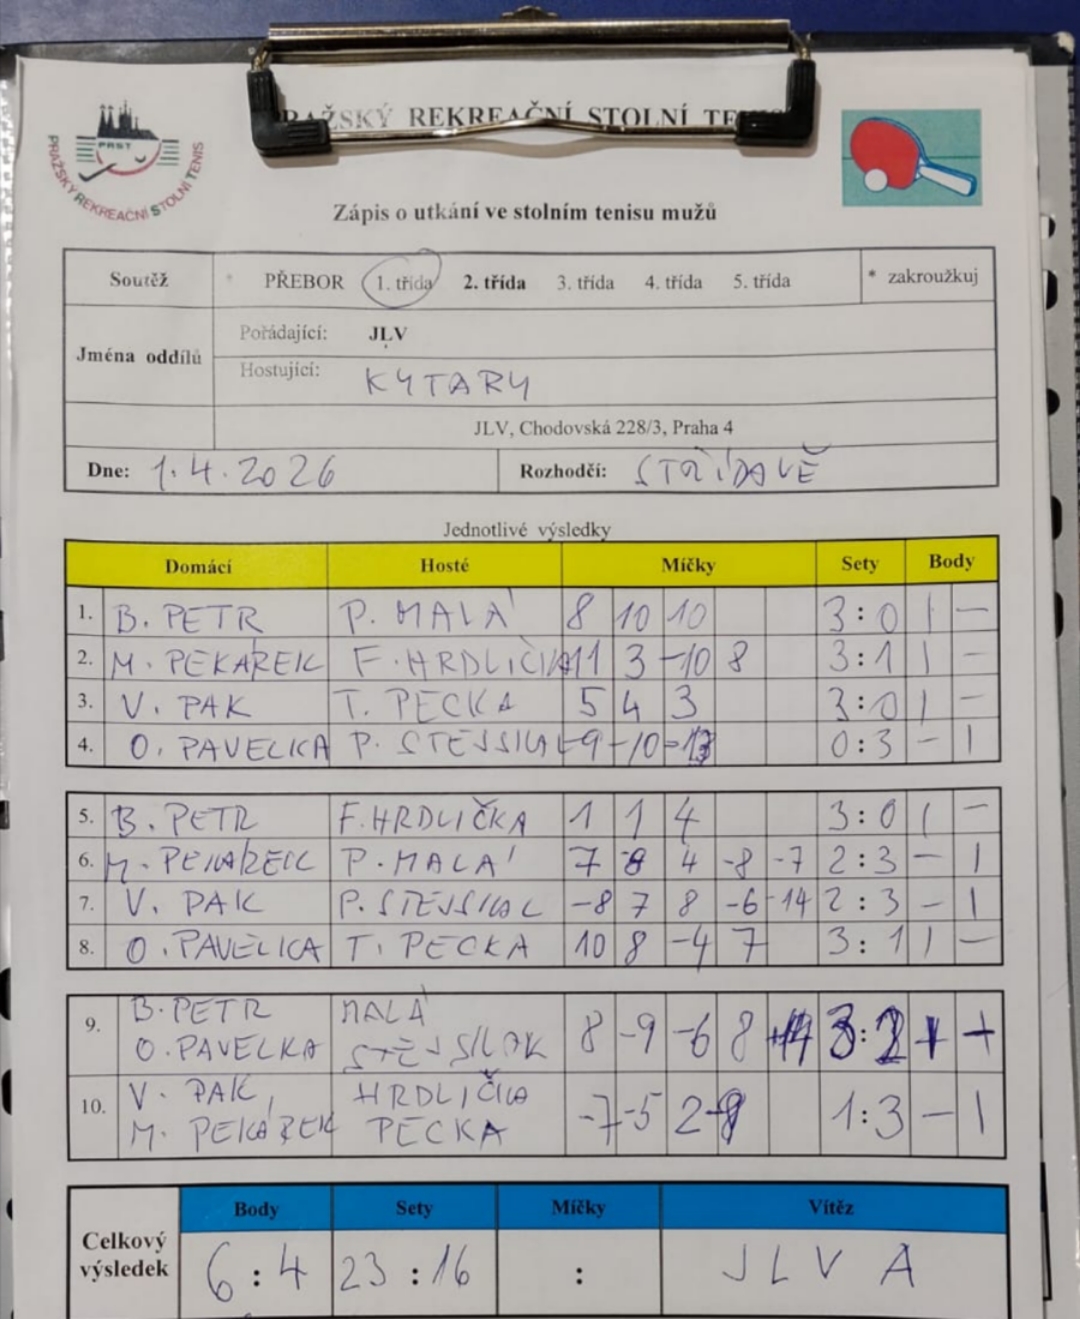 PRAŽSKÝ REKREAČNÍ STOLNÍ TENIS
PRST
PRAŽSKÝ REKREAČNÍ STOLNÍ TENIS
Zápis o utkání ve stolním tenisu mužů
Soutěž * PŘEBOR 1. třída 2. třída 3. třída 4. třída 5. třída * zakroužkuj
Jména oddílů
Pořádající: JLV
Hostující: KYTARY
JLV, Chodovská 228/3, Praha 4
Dne: 1.4.2026 Rozhodčí: STŘÍDAVĚ
Jednotlivé výsledky
Domácí Hosté Míčky Sety Body
1. B. PETR P. MALÁ 8 10 10 3:0 1 –
2. M. PEKÁREK F. HRDLIČKA 11 3 -10 8 3:1 1 –
3. V. PAK T. PECKA 5 4 3 3:0 1 –
4. O. PAVELKA P. STEJSKAL -9 -10 -13 0:3 – 1
5. B. PETR F. HRDLIČKA 1 1 4 3:0 1 –
6. M. PEKÁREK P. MALÁ 7 -8 4 -8 -7 2:3 – 1
7. V. PAK P. STEJSKAL -8 7 8 -6 -14 2:3 – 1
8. O. PAVELKA T. PECKA 10 8 -4 7 3:1 1 –
9. B. PETR MALÁ
O. PAVELKA STEJSKAL 8 -9 -6 8 3:2
10. V. PAK, HRDLIČKA
M. PEKÁREK PECKA -7 -5 2 -8 1:3 – 1
Celkový výsledek
Body Sety Míčky Vítěz
6:4 23:16 : JLV A